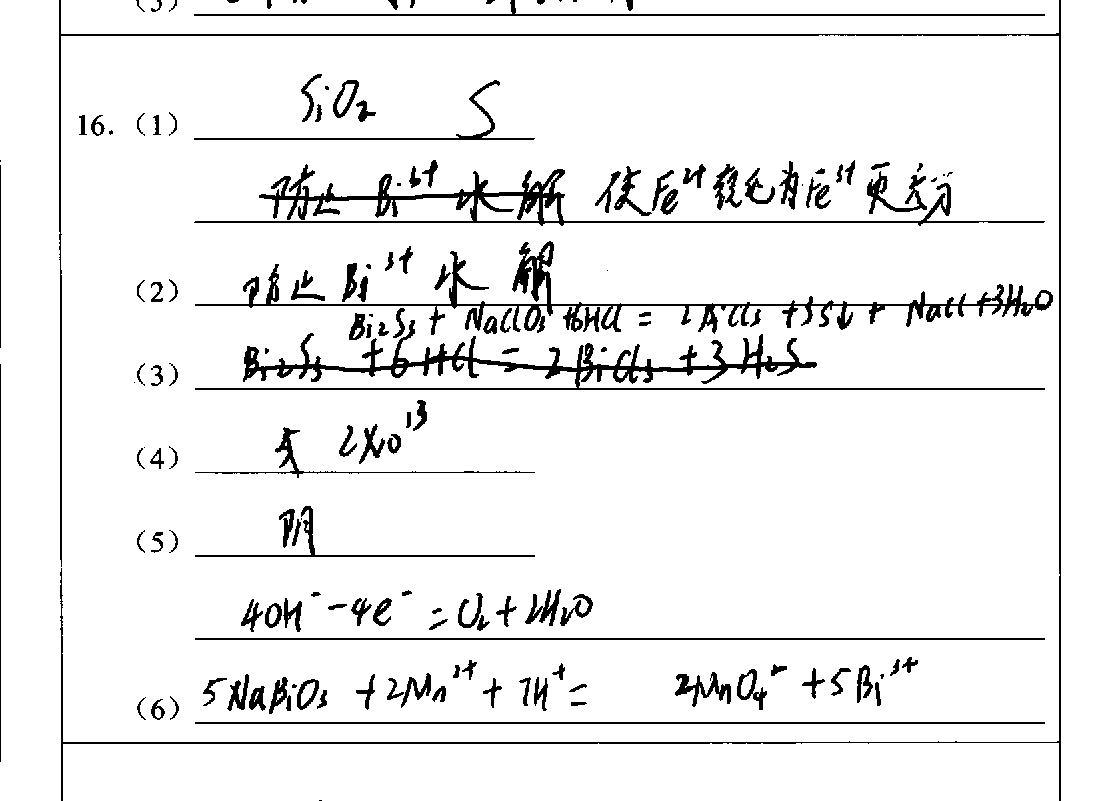 (3)
16. (1) SiO₂ S
防止 Bi³⁺ 水解 使Fe²⁺转化为Fe³⁺更充分
(2) 防止 Bi³⁺ 水 解
Bi₂S₃ + NaClO₃ +6HCl = 2BiCl₃ +3S↓ + NaCl +3H₂O
(3) Bi₂S₃ +6HCl = 2BiCl₃ +3H₂S
(4) 2×10¹³
(5) 阴
4OH⁻-4e⁻=O₂+2H₂O
(6) 5NaBiO₃ +2Mn²⁺+7H⁺= 2MnO₄⁻ +5Bi³⁺